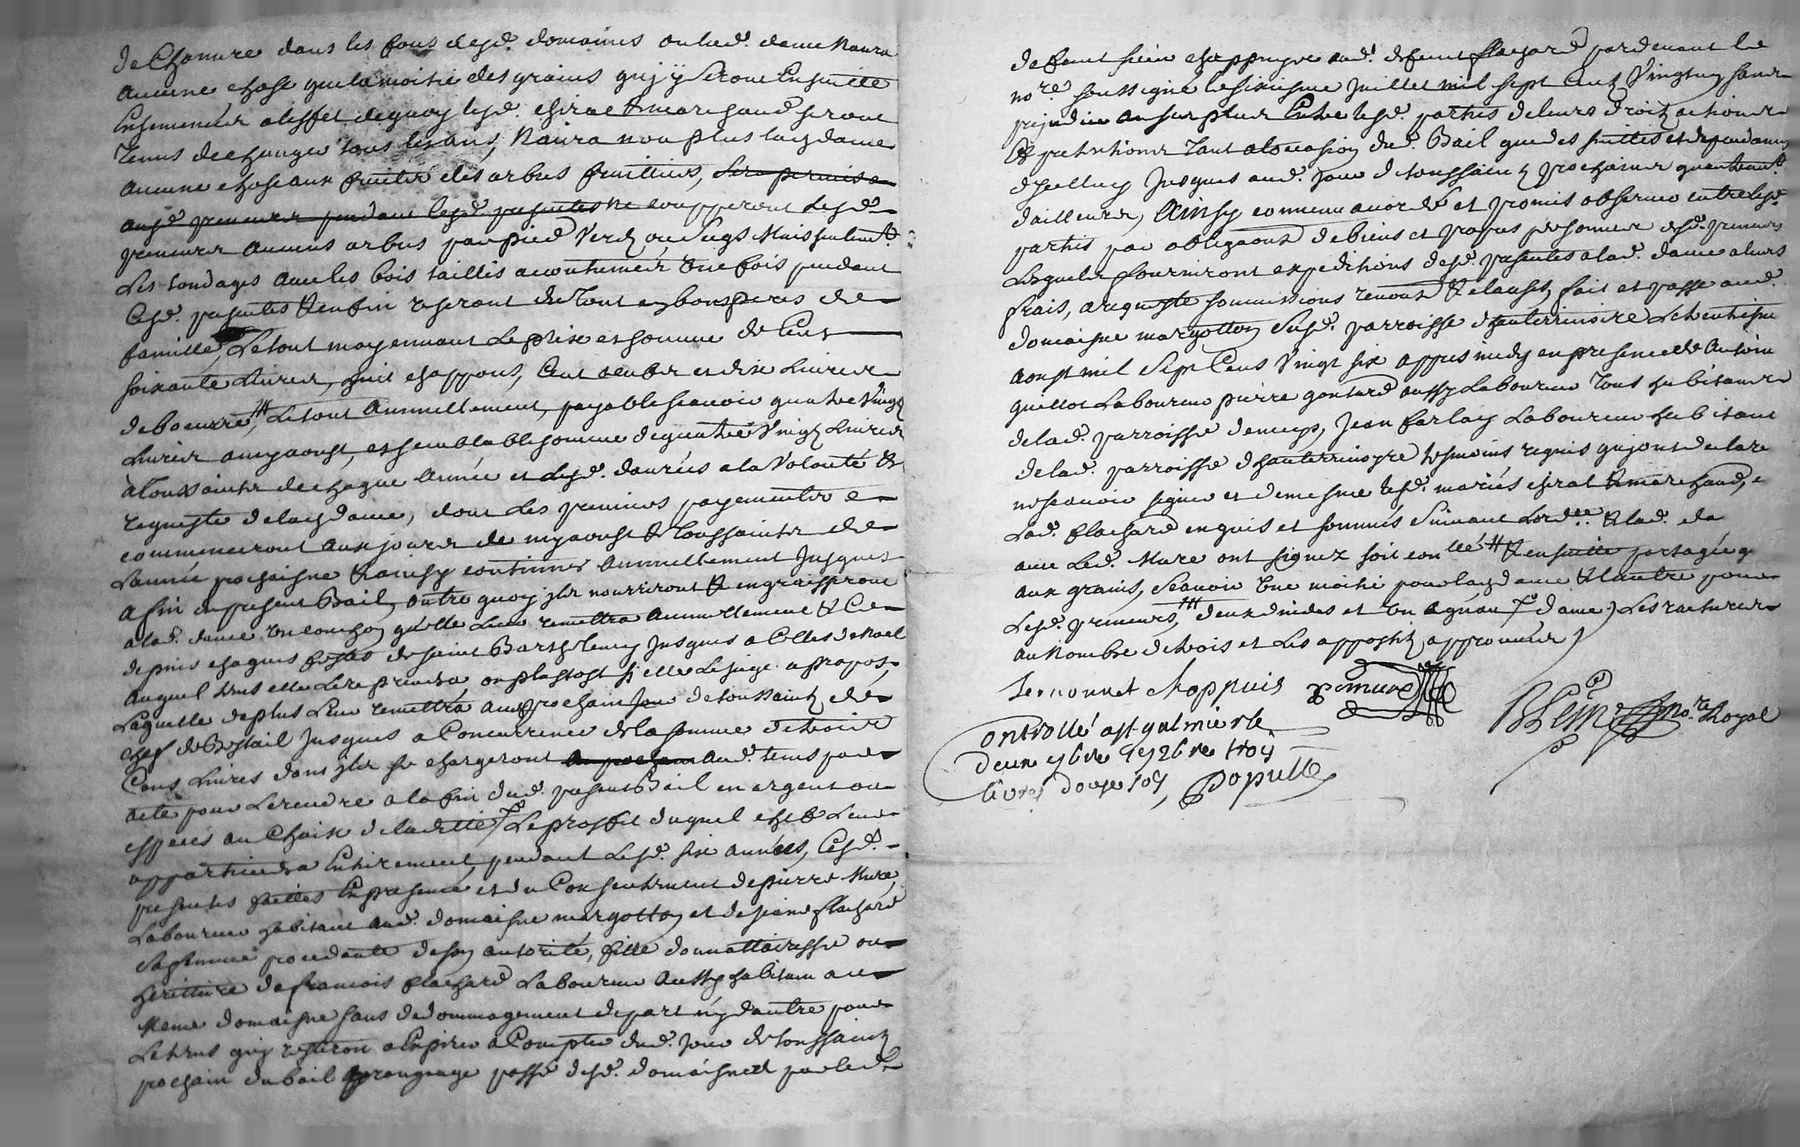 de Chanvre dans les fons desd. domaines ou lad. dame Naura
aucune chose que la moitié des grains quy y seront Ensuitte
Ensemencer a l'effet de quoy lesd. chirat & marchaud seront
tenus de changer tous les ans, Naura non plus lad dame
aucune chose aux fruits des arbres fruittiers, sera permis a
ausd. preneurs pendant lesd. presentes ne coupperont lesd.
preneurs aucuns arbres par pied Verd ou secqs Mais seulemt
Les tondages avec les bois taillis accoutumez une fois pendant
Cesd. presentes & enfin useront du tout en bons peres de
famille, Le tout moyennant Le prix et somme de Cent
soixante Livres, huit chappons, Cent oeufs et dix Livres
de boeurre, Le tout annuellement, payable scavoir quatre Vingt
Livres a myaoust, et semblable somme de quatre Vingt Livres
a toussaints de chaque année et lesd. danrées a la Volonté &
requeste de lad dame, dont Les premiers payements
commenceront aux jours de myaoust & toussaints de
L'année prochaisne & ainsy continuer annuellement jusques
a fin du present Bail, outre quoy ils nourriront & engraisseront
a lad. dame un couchon qu'elle Leur remettra annuellement & Ce
depuis chaques festes de saint Barthelemy jusques a Celles de Noel
auquel tems elle Le reprendra ou plustost sy elle Le juge a propos,
Laquelle de plus Leur remettra au prochain jour de toussaint de
chef de Bestail jusques a Concurrence de la somme de trois
Cens Livres dont ils se chargeront au prochain aud. tems par
acte pour Le rendre a la fin dud. present Bail en argent ou
especes au Choix de ladite Le proffit duquel chef Leur
appartiendra Entierement, pendant Lesd. six années, Cesd.
presentes faittes En presence et du Consentement de pierre Mure,
Laboureur habitant aud. domaisne margotton et de jeanne flachard
sa femme procedante de son autorité, fille donnattaresse ou
heritiere de francois flachard Laboureur aussy habitant au
meme domaisne sans dedommagement de part ny d'autre pour
Le tems quy restera a Expirer a Compter dud. jour de toussaint
prochain du bail a grangeage passé desd. domaisnes par led.
defunt sieur chappuys aud. defunt flachard pardevant le
nore. soussigné le sixiesme juillet mil sept cent Vingt un sans
prejudice au surplus Entre lesd. parties de leurs droits actions
& pretentions tant a l'occasion dud. Bail que des suittes et dependances
d'icelluy jusques aud. jour de toussaint prochain quautrement
d'ailleurs, Ainsy convenu accordé et promis observer entre lesd.
parties par obligaons de biens et propres personnes desd. preneurs
Lesquels fourniront expeditions desd. presentes a lad. dame a leurs
frais, a requeste soumissions renoncns & clauses, fait et passé aud.
domaisne margotton susd. parroisse d'hauterivoire Le huitiesme
aoust mil Sept Cens Vingt six appres midy en presence de Antoine
guillot Laboureur pierre gontard aussy Laboureur tous habitans
de lad. parroisse de meys, Jean farlay Laboureur habitant
de lad. parroisse d'hauterivoyre tesmoins requis qui ont declaré
ne scavoir signer et de mesme lesd. mariés chirat & marchaud,
Lad. flachard enquis et sommés Suivant Lordce. & lad. da
avec Led. Mure ont signez soit conllé & ensuitte partagée q
aux grains, scavoir une moitié pour lad dame & l'autre pour
Lesd. preneurs, deux dindes et un agneau dame) Les ratures
au Nombre de trois et Les appostils approuvées)
Lemonnet chappuis pemure
Controllé a st galmier le
deux 7bre 1726 Re trois
livres douze sols Populle
Blein nore. Royal